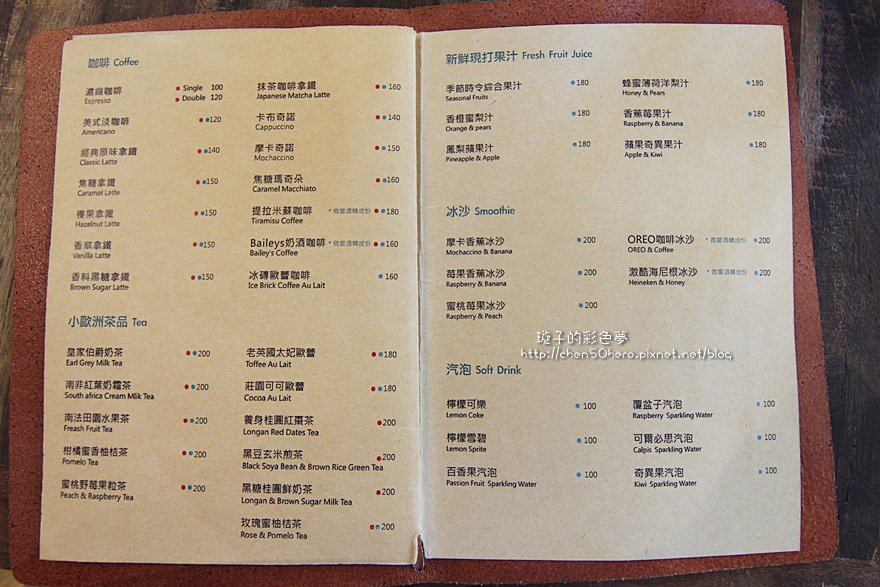 咖啡 Coffee
濃縮咖啡 Single 100
Espresso Double 120
美式淡咖啡 120
Americano
經典原味拿鐵 140
Classic Latte
焦糖拿鐵 150
Caramel Latte
榛果拿鐵 150
Hazelnut Latte
香草拿鐵 150
Vanilla Latte
香料黑糖拿鐵 150
Brown Sugar Latte
抹茶咖啡拿鐵 160
Japanese Matcha Latte
卡布奇諾 140
Cappuccino
摩卡奇諾 150
Mochaccino
焦糖瑪奇朵 160
Caramel Macchiato
提拉米蘇咖啡 *微量酒精成份 180
Tiramisu Coffee
Baileys奶酒咖啡 *微量酒精成份 160
Bailey's Coffee
冰磚歐蕾咖啡 160
Ice Brick Coffee Au Lait
小歐洲茶品 Tea
皇家伯爵奶茶 200
Earl Grey Milk Tea
南非紅葉奶霜茶 200
South africa Cream Mlik Tea
南法田園水果茶 200
Freash Fruit Tea
柑橘蜜香柚桔茶 200
Pomelo Tea
蜜桃野莓果粒茶 200
Peach & Raspberry Tea
老英國太妃歐蕾 180
Toffee Au Lait
莊園可可歐蕾 180
Cocoa Au Lait
養身桂圓紅棗茶 200
Longan Red Dates Tea
黑豆玄米煎茶 200
Black Soya Bean & Brown Rice Green Tea
黑糖桂圓鮮奶茶 200
Longan & Brown Sugar Milk Tea
玫瑰蜜柚桔茶 200
Rose & Pomelo Tea
新鮮現打果汁 Fresh Fruit Juice
季節時令綜合果汁 180
Seasonal Fruits
香橙蜜梨汁 180
Orange & pears
鳳梨蘋果汁 180
Pineapple & Apple
蜂蜜薄荷洋梨汁 180
Honey & Pears
香蕉莓果汁 180
Raspberry & Banana
蘋果奇異果汁 180
Apple & Kiwi
冰沙 Smoothie
摩卡香蕉冰沙 200
Mochaccino & Banana
莓果香蕉冰沙 200
Raspberry & Banana
蜜桃莓果冰沙 200
Raspberry & Peach
OREO咖啡冰沙 *微量酒精成份 200
OREO & Coffee
激酷海尼根冰沙 *微量酒精成份 200
Heineken & Honey
璇子的彩色夢
http://chen50hero.pixnet.net/blog
汽泡 Soft Drink
檸檬可樂 100
Lemon Coke
檸檬雪碧 100
Lemon Sprite
百香果汽泡 100
Passion Fruit Sparkling Water
覆盆子汽泡 100
Raspberry Sparkling Water
可爾必思汽泡 100
Calpis Sparkling Water
奇異果汽泡 100
Kiwi Sparkling Water